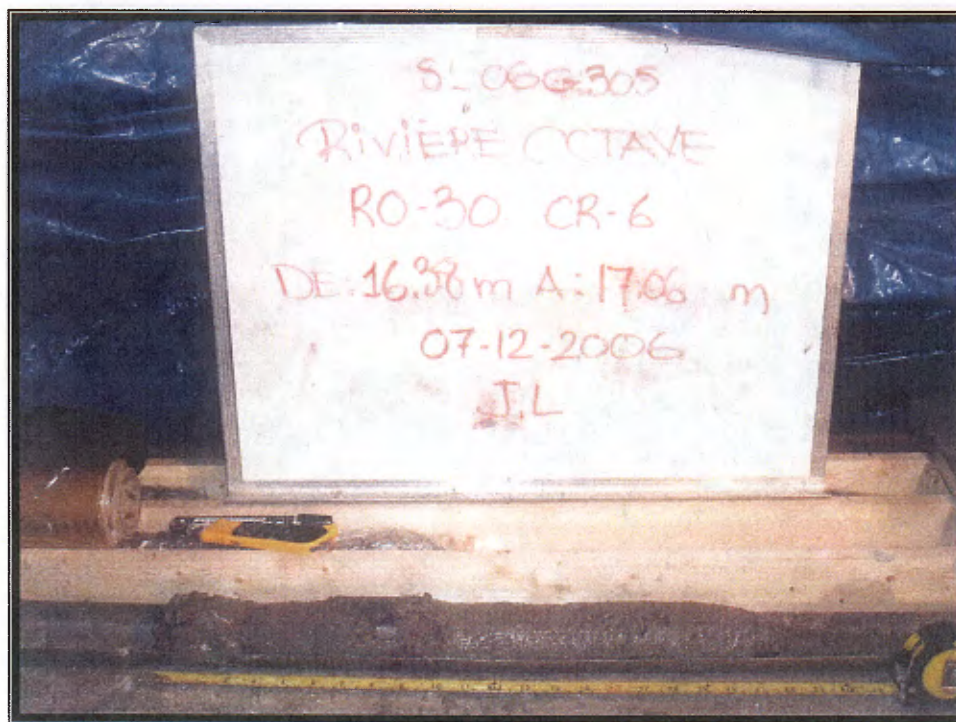 S_06G305
RIVIÈRE OCTAVE
RO-30 CR-6
DE: 16.38 m A: 17.06 m
07-12-2006
J.L